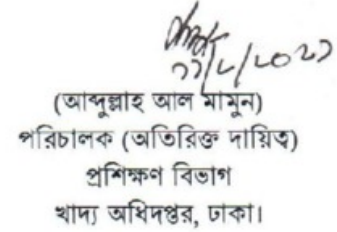 (আব্দুল্লাহ আল মামুন)
পরিচালক (অতিরিক্ত দায়িত্ব)
প্রশিক্ষণ বিভাগ
খাদ্য অধিদপ্তর, ঢাকা।